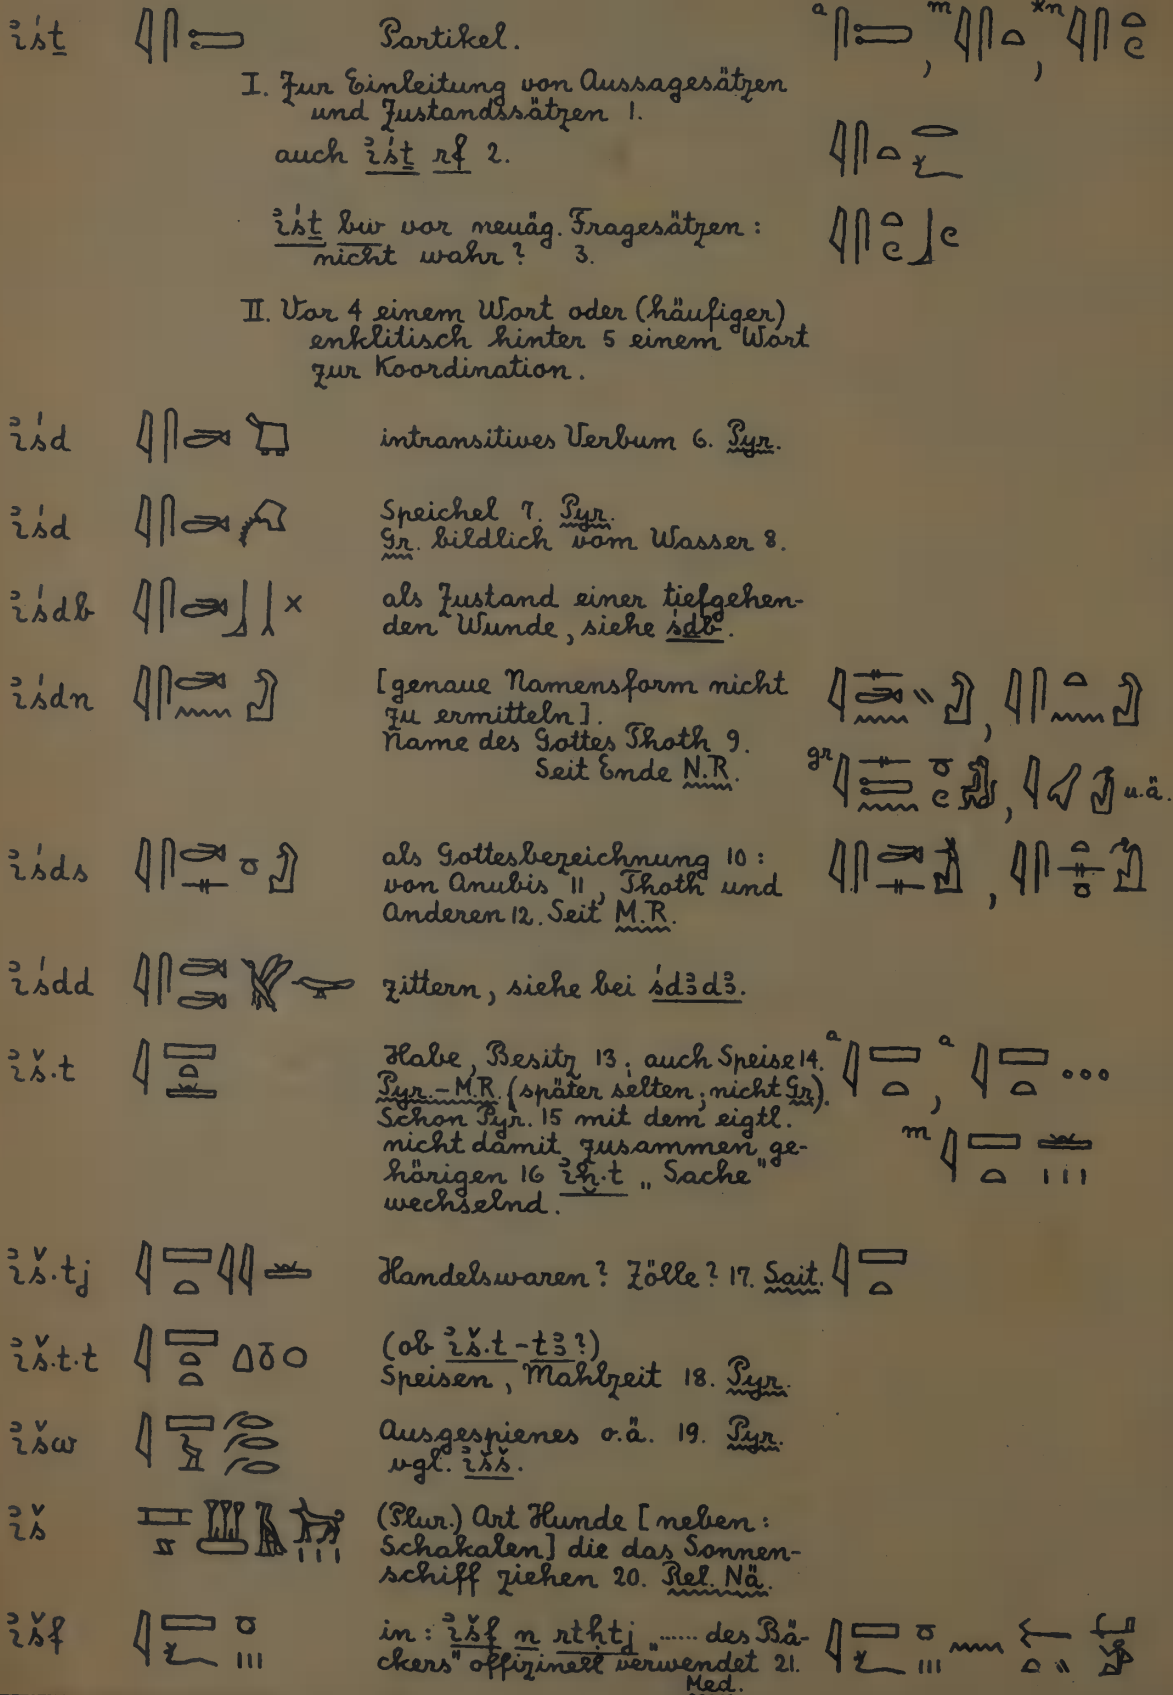 ꞽśṯ Partikel. a , m , *n
I. Zur Einleitung von Aussagesätzen
und Zustandssätzen 1.
auch ꞽśṯ rf 2.
ꞽśṯ bw vor neuäg. Fragesätzen:
nicht wahr? 3.
II. Vor 4 einem Wort oder (häufiger)
enklitisch hinter 5 einem Wort
zur Koordination.
ꞽśd intransitives Verbum 6. Pyr.
ꞽśd Speichel 7. Pyr.
Gr. bildlich vom Wasser 8.
ꞽśdb als Zustand einer tiefgehen-
den Wunde, siehe śdb.
ꞽśdn [genaue Namensform nicht
zu ermitteln].
Name des Gottes Thoth 9.
Seit Ende N.R. gr , u.ä.
ꞽśds als Gottesbezeichnung 10:
von Anubis 11, Thoth und
Anderen 12. Seit M.R.
ꞽśdd zittern, siehe bei śdꜣdꜣ.
ꞽš.t Habe, Besitz 13; auch Speise 14. a , a
Pyr.-M.R. (später selten; nicht Gr).
Schon Pyr. 15 mit dem eigtl.
nicht damit zusammen ge- m
hörigen 16 ꞽḫ.t „Sache"
wechselnd.
ꞽš.tj Handelswaren? Zölle? 17. Sait.
ꞽš.t.t (ob ꞽš.t-tꜣ?)
Speisen, Mahlzeit 18. Pyr.
ꞽšw Ausgespienes o.ä. 19. Pyr.
vgl. ꞽšš.
ꞽš (Plur.) Art Hunde [neben:
Schakalen] die das Sonnen-
schiff ziehen 20. Rel. Nä.
ꞽšf in: ꞽšf n rtḥtj „...... des Bä-
ckers" offizinell verwendet 21.
Med.